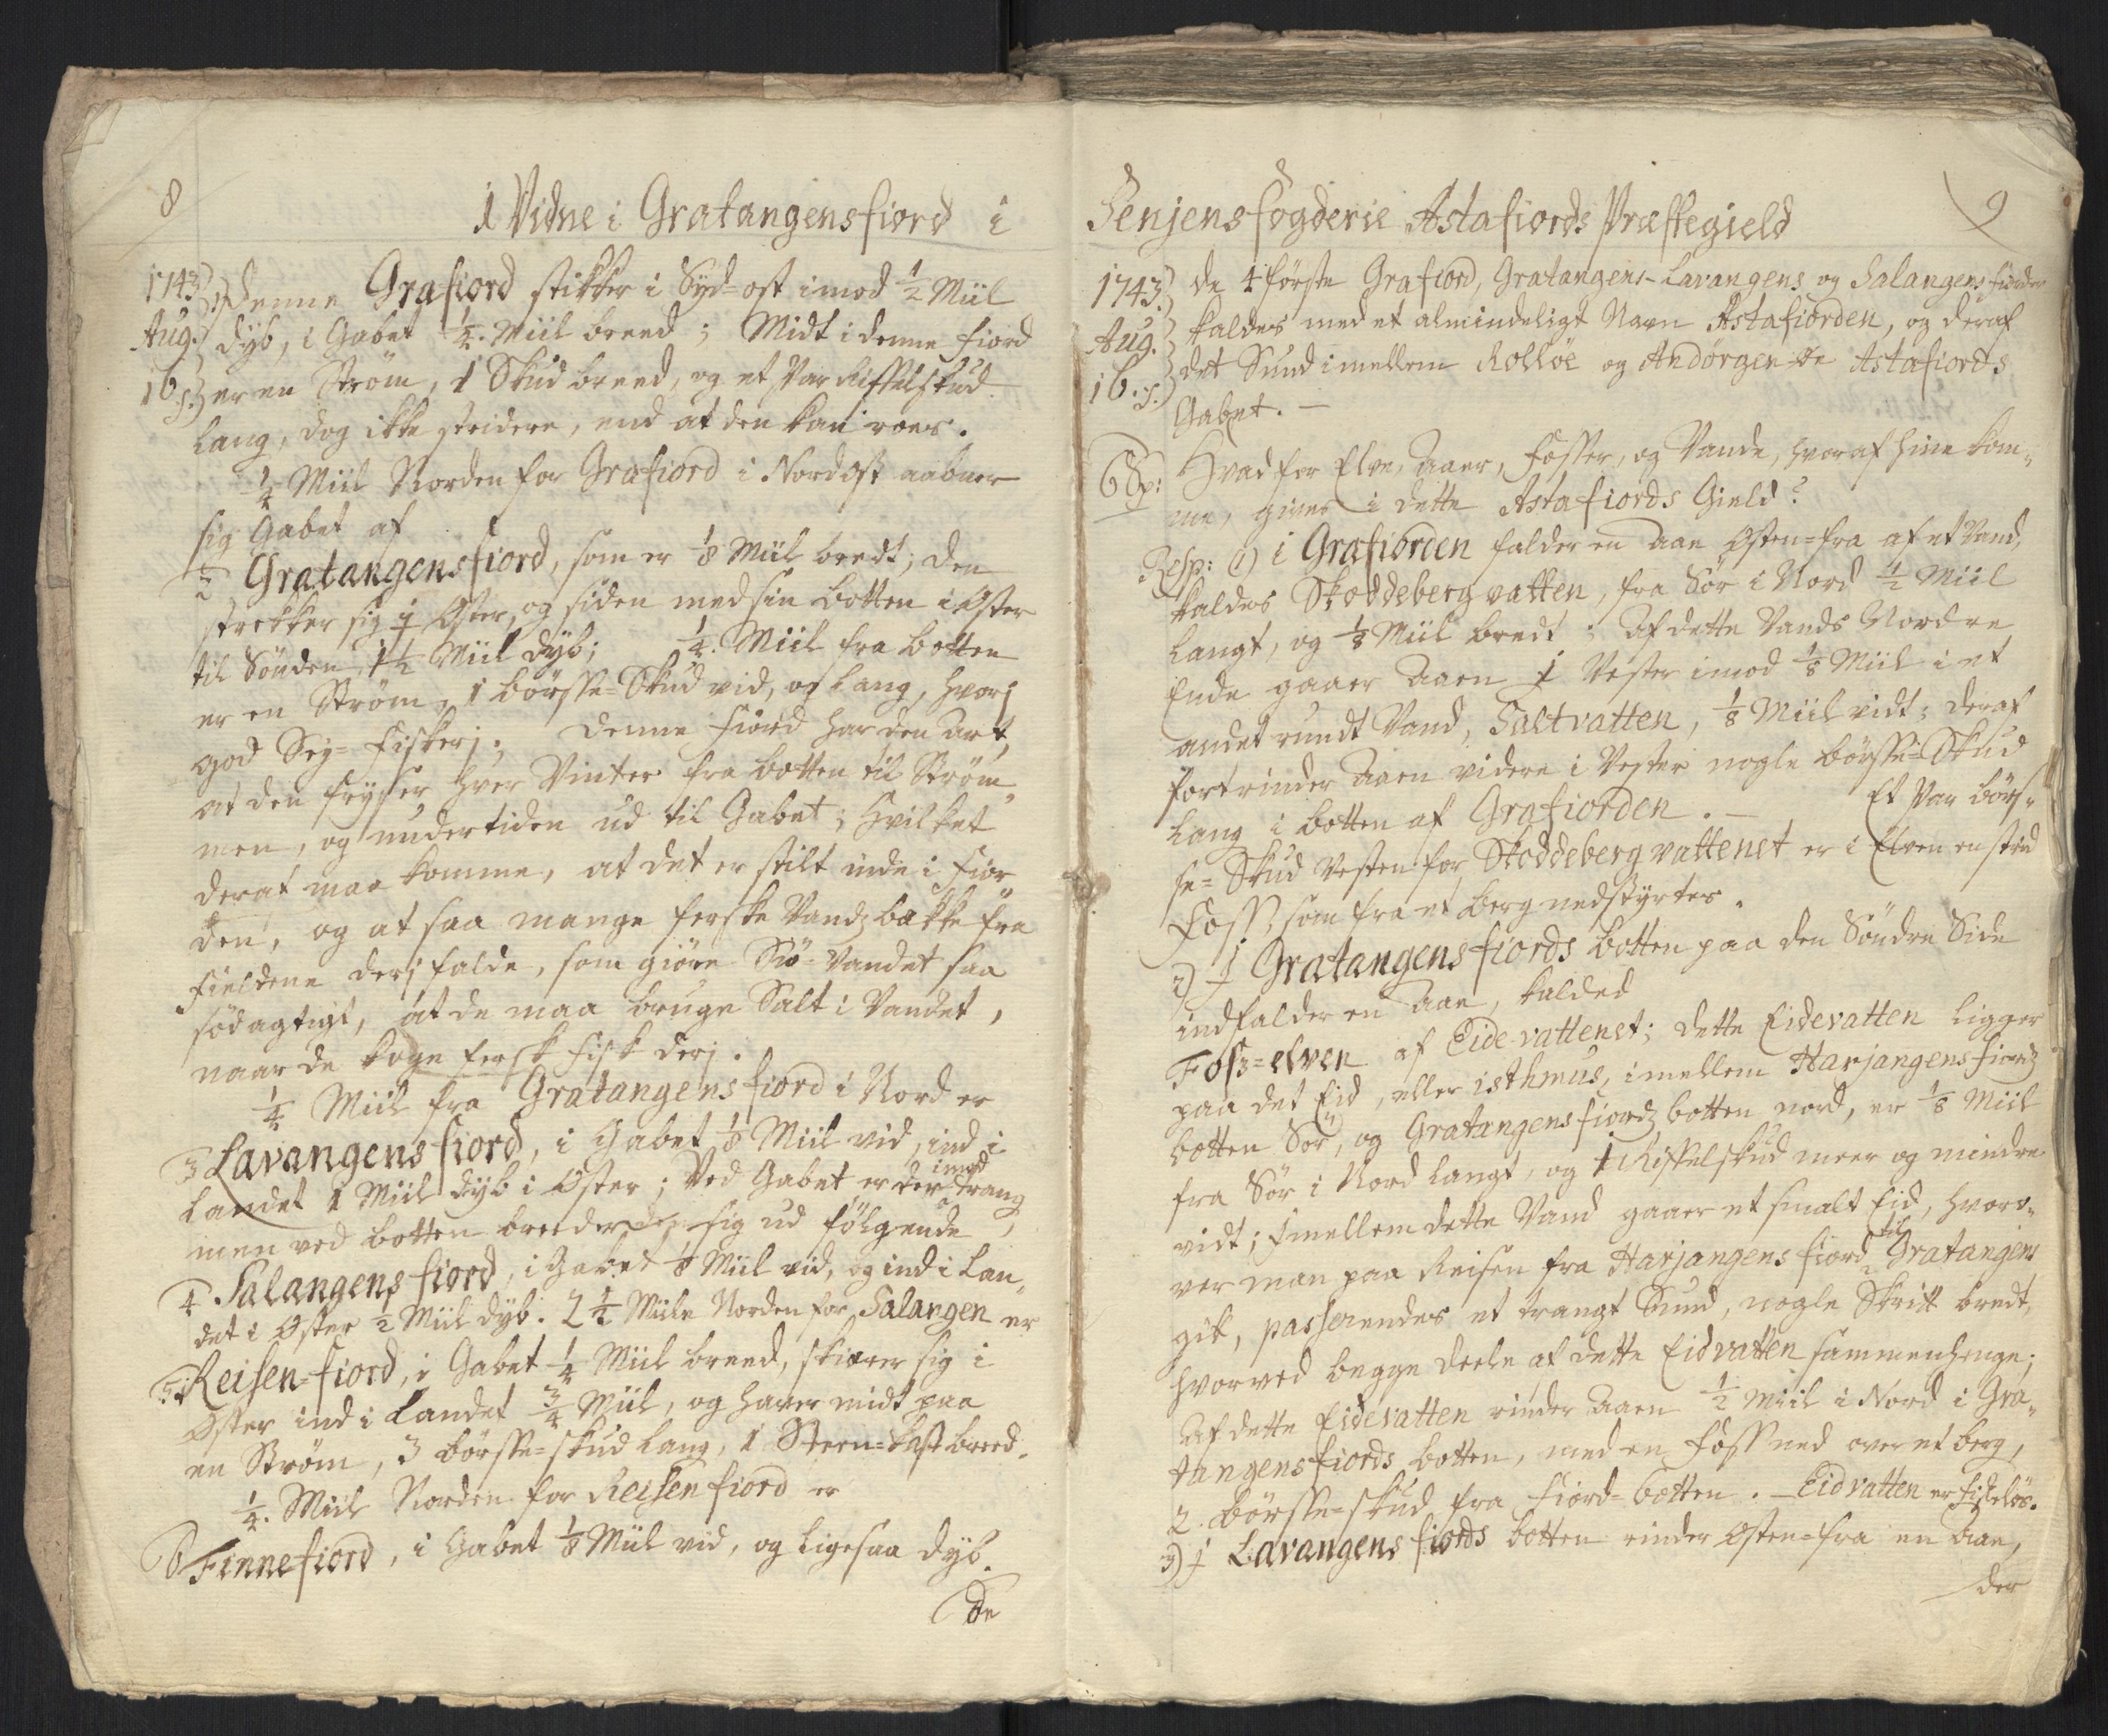 8
1 Vidne i Gratangensfiord i
1743 1) Denne Grafiord stikker i Syd-ost imod 1/2 Miil
Aug. dyb, i Gabet 1/4. Miil breed; Midt i denne Fiord
16. s. er en Strøm, 1 Skud breed, og et Par Riffelskud
lang, dog ikke stridere, end at den kan roes.
1/4 Miil Norden for Grafiord i Nordost aabner
sig Gabet af
2 Gratangensfiord, som er 1/8 Miil bredt; den
strekker sig i Oster, og siden med sin botten i Oster
til Sønden 1 1/2 Miil dyb; 1/4. Miil fra botten
er en Strøm, 1 børsse-Skud vid, og lang, hvorj
god Sey-Fiskerj. Denne Fiord har den Art,
at den fryser hver Vinter fra botten til Strøm-
men, og undertiden ud til Gabet; hvilket
deraf maa komme, at det er stilt inde i Fior
den, og at saa mange ferske Vandz bække fra
Fieldene derj falde, som giøre Siö-Vandet saa
södagtigt, at de maa bruge Salt i Vandet,
naar de koge fersk fisk derj.
1/4 Miil fra Gratangensfiord i Nord er
3 Lavangensfiord, i Gabet 1/8 Miil vid, ind i
Landet 1 Miil dyb i Oster; Ved Gabet er der imod trang
men ved botten breeder sig ud følgende
4 Salangensfiord, i Gabet 1/8 Miil vid, og ind i Lan-
det i Oster 1/2 Miil dyb. 2 1/2 Miile Norden for Salangen er
5 Reisen-fiord, i Gabet 1/4 Miil breed, skiærer sig i
Oster ind i Landet 3/4 Miil, og haver midt paa
en Strøm, 3 børsse-skud lang, 1 Steen-kast breed.
1/4. Miil Norden for Reisenfiord er
6 Finnefiord, i Gabet 1/8 Miil vid, og ligesaa dyb.
De
Senjens fogderie Astafiords Præstegield
9
1743. de 4 første Grafiord, Gratangens-Lavangens og Salangens fiorder
Aug. kaldes med et almindeligt Navn Astafiorden, og deraf
16. s. det Sund imellem Rolløe og Andørgen de Astafiords
Gabet. —
6 Sp: Hvad for Elve, Aaer, Fosser, og Vande, hvoraf hine kom-
me, gives i dette Astafiords Gield?
Resp: 1) i Grafiorden falder en Aae Osten-fra af et Vand,
kaldes Skoddebergvatten, fra Sör i Nord 1/2 Miil
langt, og 1/8 Miil bredt; af dette Vands Nordre
Ende gaaer Aaen i Vester imod 1/8 Miil i et
andet rundt Vand, Saltvatten, 1/8 Miil vidt; deraf
fortrinder Aaen videre i Vester nogle børsse-Skud
lang i botten af Grafiorden. — Et Par børs-
se-Skud Vesten for Skoddebergvattenet er i Elven en strid
Foss, som fra et berg nedstyrtes.
2) J Gratangensfiords botten paa den Söndre Side
indfalder en Aae, kalded
Fosz-elven af Eide-vattenet; dette Eidevatten ligger
paa det Eid, eller isthmus, imellem Harjangensfiordz
botten Sör, og Gratangensfiordz botten nord, er 1/8 Miil
fra Sör i Nord langt, og 1 Riffelskud meer og mindre
vidt; Jmellem dette Vand gaaer et smalt Eid, hvoro-
ver man paa Reisen fra Harjangens fiord til Gratangens
gik, passerendes et trangt Sund, nogle Skritt bredt,
hvorved begge deele af dette Eidvatten sammenhenge;
Af dette Eidevatten rinder Aaen 1/2 Miil i Nord i Gra-
tangensfiords botten, med en Foss ned over et berg,
2. börsse-skud fra Fiord-botten. — Eidvatten er fiskeløs.
3) J Lavangens fiords botten rinder Osten-fra en Aae,
der